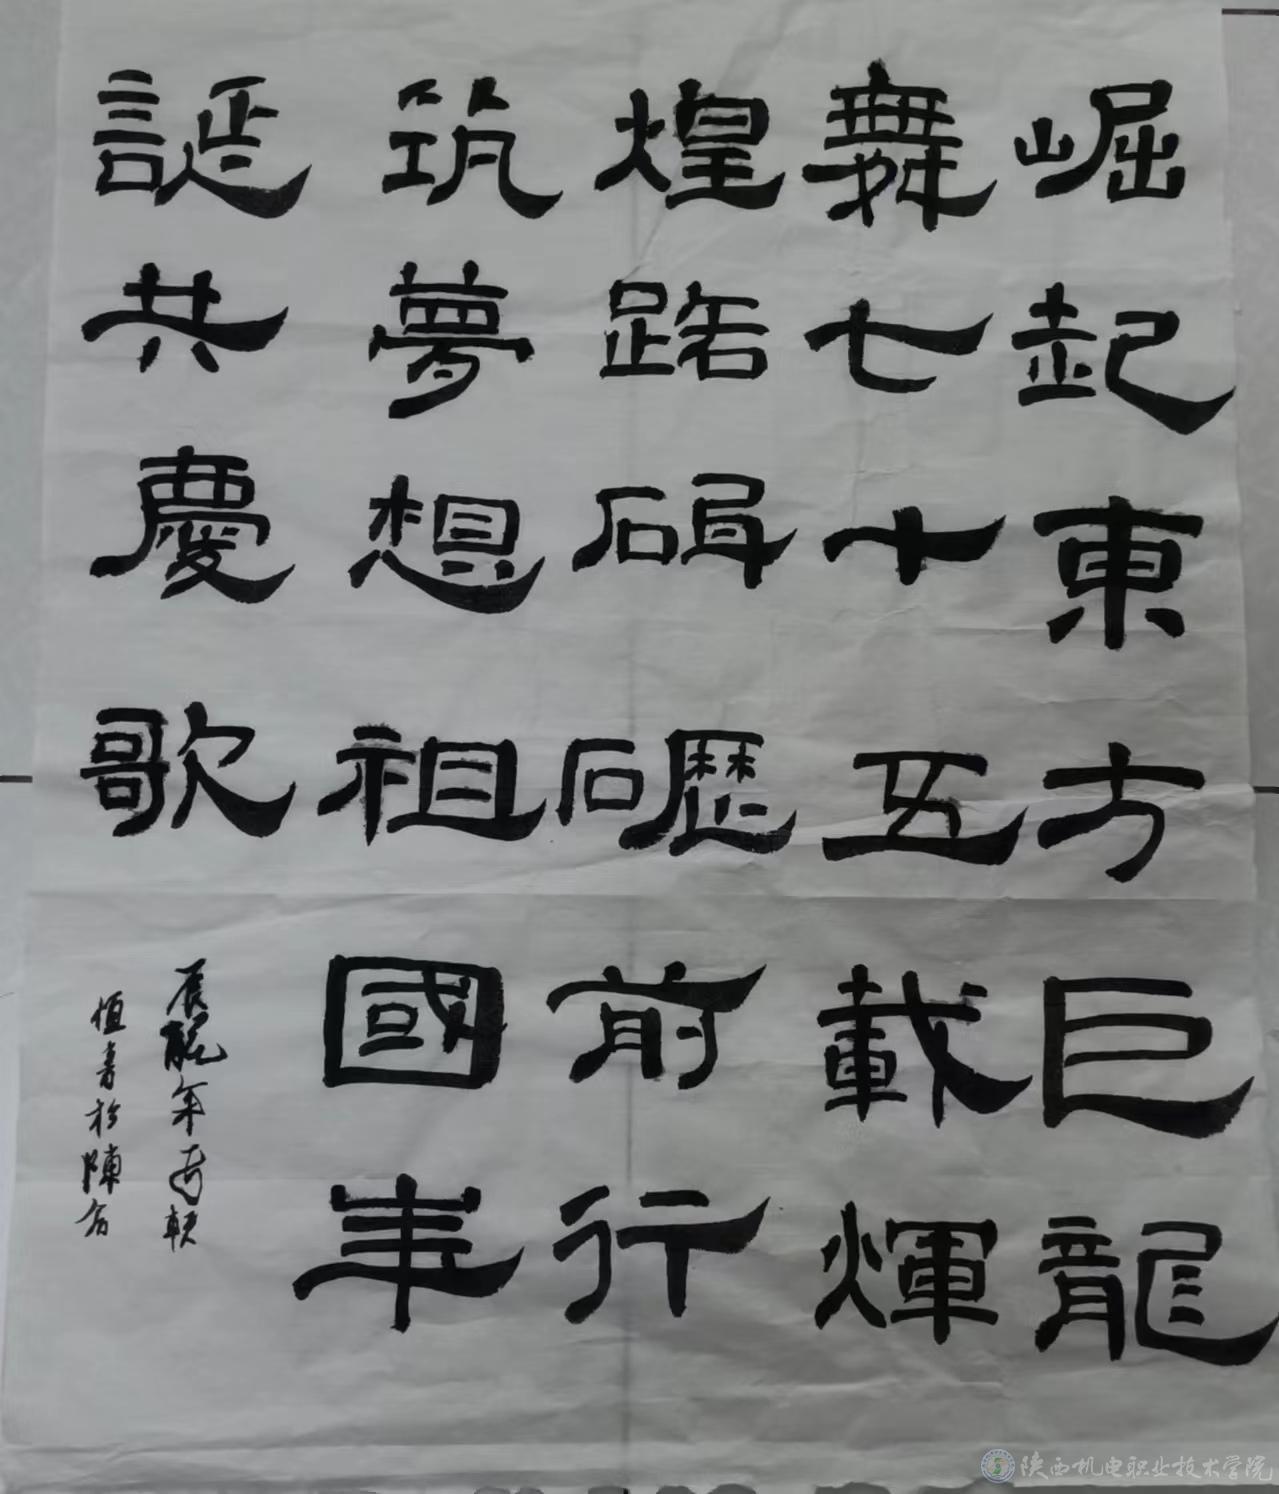 崛起東方巨龍
舞七十五載輝
煌路礰前行
筑夢想祖國華
誕共慶歌
辰龍年
恒書於陳倉
陕西机电职业技术学院